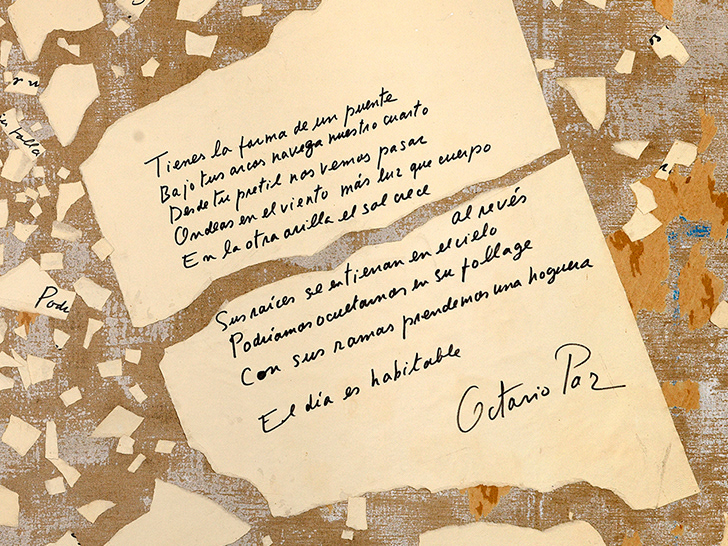 Tienes la forma de un puente
Bajo tus arcos navega nuestro cuarto
Desde tu pretil nos vemos pasar
Ondeas en el viento más luz que cuerpo
En la otra orilla el sol crece
al revés
Sus raíces se entierran en el cielo
Podríamos ocultarnos en su follage
Con sus ramas prendemos una hoguera
El día es habitable
Octavio Paz
folla